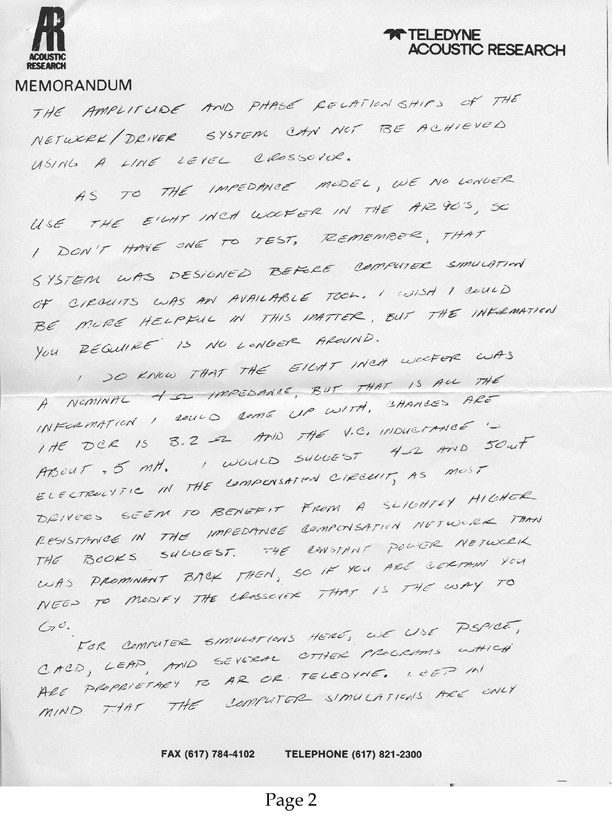 AR
ACOUSTIC
RESEARCH
TELEDYNE
ACOUSTIC RESEARCH
MEMORANDUM
THE AMPLITUDE AND PHASE RELATIONSHIPS OF THE
NETWORK/DRIVER SYSTEM CAN NOT BE ACHIEVED
USING A LINE LEVEL CROSSOVER.
AS TO THE IMPEDANCE MODEL, WE NO LONGER
USE THE EIGHT INCH WOOFER IN THE AR90'S, SO
I DON'T HAVE ONE TO TEST. REMEMBER, THAT
SYSTEM WAS DESIGNED BEFORE COMPUTER SIMULATION
OF CIRCUITS WAS AN AVAILABLE TOOL. I WISH I COULD
BE MORE HELPFUL IN THIS MATTER, BUT THE INFORMATION
YOU REQUIRE IS NO LONGER AROUND.
I DO KNOW THAT THE EIGHT INCH WOOFER WAS
A NOMINAL 4Ω IMPEDANCE, BUT THAT IS ALL THE
INFORMATION I COULD COME UP WITH. CHANCES ARE
THE DCR IS 3.2Ω AND THE V.C. INDUCTANCE IS
ABOUT .5 mH. I WOULD SUGGEST 4Ω AND 50uF
ELECTROLYTIC IN THE COMPENSATION CIRCUIT, AS MOST
DRIVERS SEEM TO BENEFIT FROM A SLIGHTLY HIGHER
RESISTANCE IN THE IMPEDANCE COMPENSATION NETWORK THAN
THE BOOKS SUGGEST. THE CONSTANT POWER NETWORK
WAS PROMINANT BACK THEN, SO IF YOU ARE CERTAIN YOU
NEED TO MODIFY THE CROSSOVER THAT IS THE WAY TO
GO.
FOR COMPUTER SIMULATIONS HERE, WE USE PSPICE,
CACD, LEAP, AND SEVERAL OTHER PROGRAMS WHICH
ARE PROPRIETARY TO AR OR TELEDYNE. KEEP IN
MIND THAT THE COMPUTER SIMULATIONS ARE ONLY
FAX (617) 784-4102 TELEPHONE (617) 821-2300
Page 2